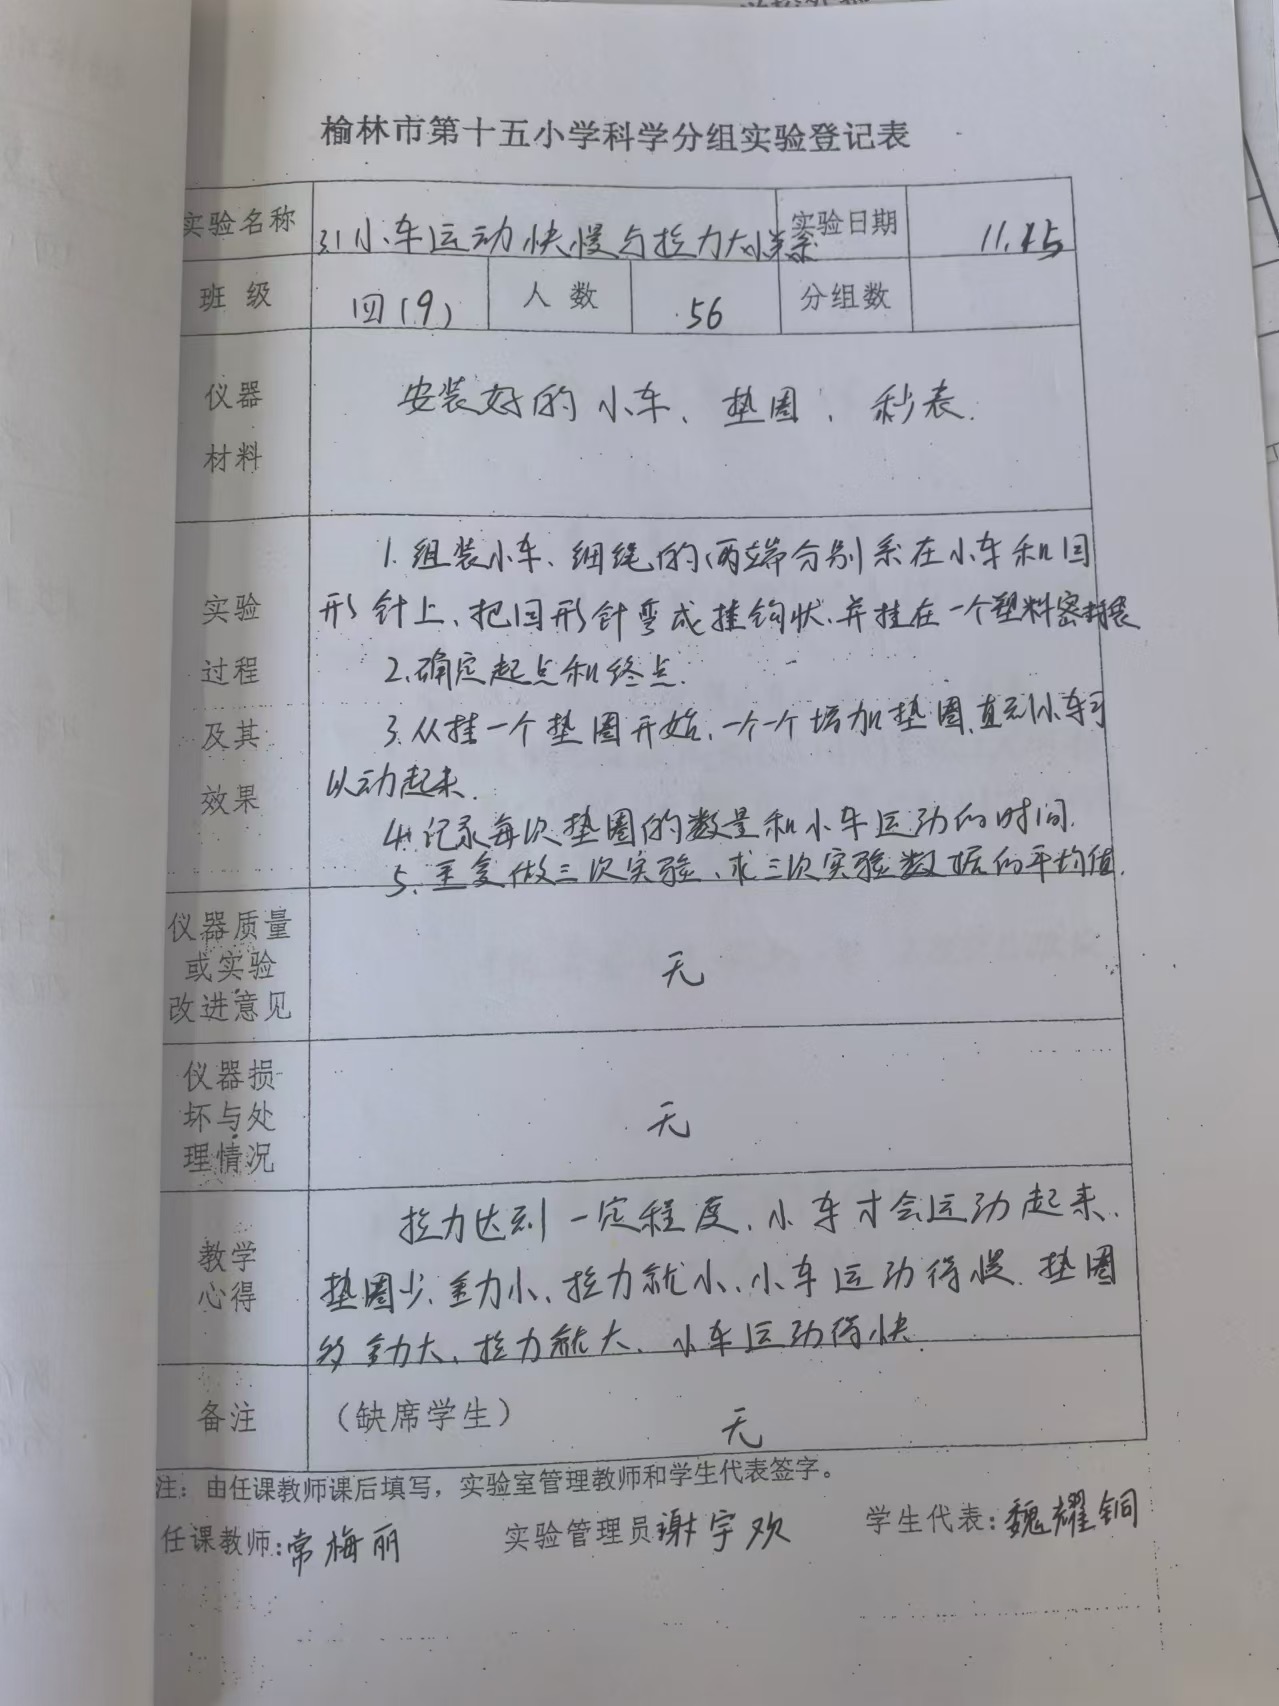 榆林市第十五小学科学分组实验登记表
实验名称 3.1小车运动快慢与拉力大小关系 实验日期 11.15
班级 四(9) 人数 56 分组数
仪器
材料
安装好的小车、垫圈、秒表.
实验
过程
及其
效果
1.组装小车、细绳的两端分别系在小车和回
形针上、把回形针弯成挂钩状、并挂在一个塑料密封袋
2.确定起点和终点.
3.从挂一个垫圈开始、一个一个增加垫圈、直至小车可
以动起来.
4.记录每次垫圈的数量和小车运动的时间.
5.重复做三次实验、求三次实验数据的平均值.
仪器质量
或实验
改进意见
无
仪器损
坏与处
理情况
无
教学
心得
拉力达到一定程度、小车才会运动起来、
垫圈少、重力小、拉力就小、小车运动得慢、垫圈
多重力大、拉力就大、小车运动得快
备注 （缺席学生） 无
注：由任课教师课后填写，实验室管理教师和学生代表签字。
任课教师:常梅丽 实验管理员谢宇欢 学生代表:魏耀铜